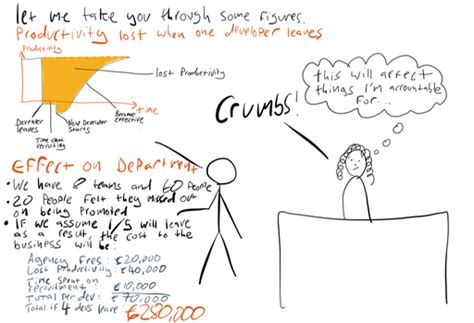 let me take you through some figures.
Productivity lost when one developer leaves
Productivity
lost Productivity
time
Developer leaves
Time spent recruiting
New Developer Starts
Become effective
Crumbs!
this will affect
things I'm accountable
for...
Effect on Department
• We have 8 teams and 60 People
• 20 People felt they missed out
on being Promoted
• If we assume 1/5 will leave
as a result, the cost to the
business will be:
Agency Fees: £20,000
Lost Productivity: £40,000
Time spent on
recruitment: £10,000
Total per dev: £70,000
Total if 4 devs leave: £280,000